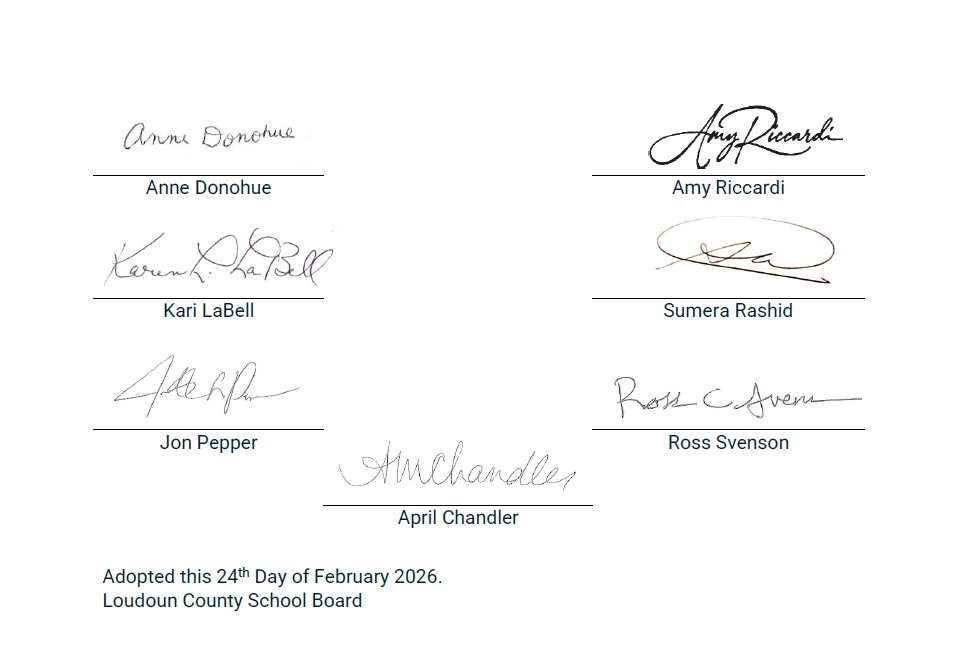 Anne Donohue
Amy Riccardi
Anne Donohue
Amy Riccardi
Karen L. LaBell
Kari LaBell
Sumera Rashid
Ross
Jon Pepper
Ross Svenson
AMChandler
April Chandler
Adopted this 24th Day of February 2026.
Loudoun County School Board